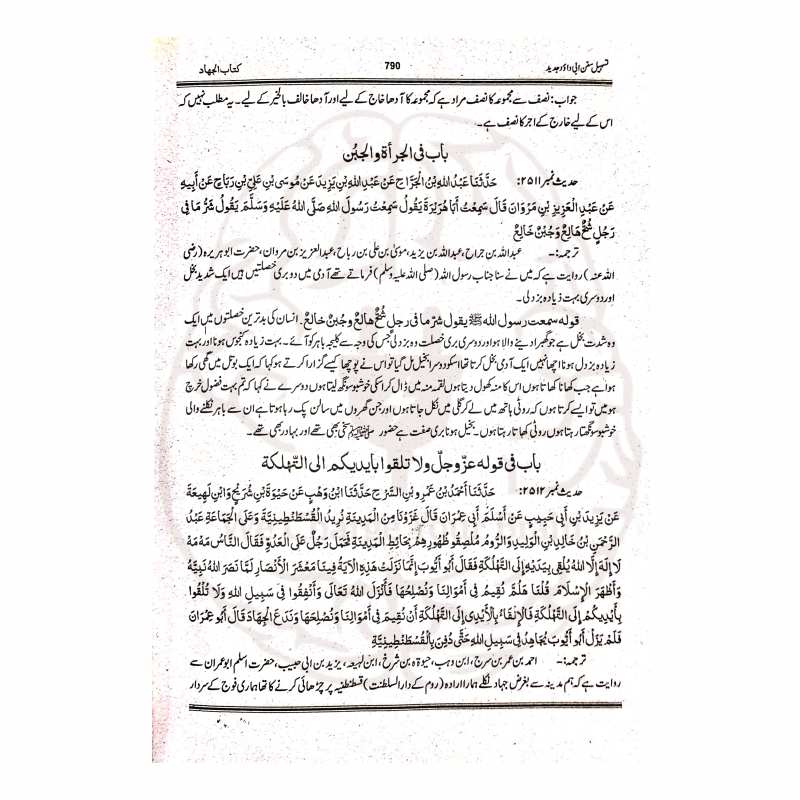 تسہیل سنن ابی داؤد جدید 790 کتاب الجہاد
جواب: نصف سے مجموعہ کا نصف مراد ہے کہ مجموعہ کا آدھا خاج کے لیے اور آدھا خالف بالخیر کے لیے۔ یہ مطلب نہیں کہ
اس کے لیے خارج کے اجر کا نصف ہے۔
باب فی الجرأة والجبُن
حدیث نمبر ۲۵۱۱: حَدَّثَنَا عَبْدُ اللهِ بْنُ الْجَرَّاحِ عَنْ عَبْدِ اللهِ بْنِ يَزِيدَ عَنْ مُوسَى بْنِ عَلِيِّ بْنِ رَبَاحٍ عَنْ أَبِيهِ
عَنْ عَبْدِ الْعَزِيزِ بْنِ مَرْوَانَ قَالَ سَمِعْتُ أَبَا هُرَيْرَةَ يَقُولُ سَمِعْتُ رَسُولَ اللهِ صَلَّى اللهُ عَلَيْهِ وَسَلَّمَ يَقُولُ شَرُّ مَا فِي
رَجُلٍ شُحٌّ هَالِعٌ وَجُبْنٌ خَالِعٌ
ترجمہ:۔ عبداللہ بن جراح، عبداللہ بن یزید، موسیٰ بن علی بن رباح، عبدالعزیز بن مردان، حضرت ابوہریرہ (رضی
اللہ عنہ) روایت ہے کہ میں نے سنا جناب رسول اللہ (صلی اللہ علیہ وسلم) فرماتے تھے آدمی میں دو بری خصلتیں ہیں ایک شدید بخل
اور دوسری بہت زیادہ بزدلی۔
قوله سمعت رسول الله ﷺ يقول شرّ ما فى رجلٍ شُحٌّ هالعٌ وجبُنٌ خالعٌ. انسان کی بدترین خصلتوں میں ایک
وہ شدت بخل ہے جو گھبرا دینے والا ہو اور دوسری بری خصلت وہ بزدلی جس کی وجہ سے کلیجہ باہر کو آئے۔ بہت زیادہ کنجوس ہونا اور بہت
زیادہ بزدل ہونا اچھا نہیں ایک آدمی بخل کرتا تھا اسکو دوسرا بخیل مل گیا تو اس نے پوچھا کیسے گزارا کرتے ہو کہا کہ ایک بوتل میں گھی رکھا
ہوا ہے جب کھانا کھاتا ہوں اس کا منہ کھول دیتا ہوں لقمہ منہ میں ڈال کر اسکی خوشبو سونگھ لیتا ہوں دوسرے نے کہا کہ تم بہت فضول خرچ
ہو میں تو ایسے کرتا ہوں کہ روٹی ہاتھ میں لے کر گلی میں نکل جاتا ہوں اور جن گھروں میں سالن پک رہا ہوتا ہے ان سے باہر نکلنے والی
خوشبو سونگھتا رہتا ہوں روٹی کھاتا رہتا ہوں۔ بخیل ہونا بری صفت ہے حضور ﷺ سخی بھی تھے اور بہادر بھی تھے۔
باب فی قوله عزّوجلّ ولا تلقوا بایدیکم الی التّهلكة
حدیث نمبر ۲۵۱۲: حَدَّثَنَا أَحْمَدُ بْنُ عَمْرِو بْنِ السَّرْحِ حَدَّثَنَا ابْنُ وَهْبٍ عَنْ حَيْوَةَ بْنِ شُرَيْحٍ وَابْنِ لَهِيعَةَ
عَنْ يَزِيدَ بْنِ أَبِي حَبِيبٍ عَنْ أَسْلَمَ أَبِي عِمْرَانَ قَالَ غَزَوْنَا مِنَ الْمَدِينَةِ نُرِيدُ الْقُسْطَنْطِينِيَّةَ وَعَلَى الْجَمَاعَةِ عَبْدُ
الرَّحْمَنِ بْنُ خَالِدِ بْنِ الْوَلِيدِ وَالرُّومُ مُلْصِقُو ظُهُورِهِمْ بِحَائِطِ الْمَدِينَةِ فَحَمَلَ رَجُلٌ عَلَى الْعَدُوِّ فَقَالَ النَّاسُ مَهْ مَهْ
لَا إِلَهَ إِلَّا اللهُ يُلْقِي بِيَدَيْهِ إِلَى التَّهْلُكَةِ فَقَالَ أَبُو أَيُّوبَ إِنَّمَا نَزَلَتْ هَذِهِ الْآيَةُ فِينَا مَعْشَرَ الْأَنْصَارِ لَمَّا نَصَرَ اللهُ نَبِيَّهُ
وَأَظْهَرَ الْإِسْلَامَ قُلْنَا هَلُمَّ نُقِيمُ فِي أَمْوَالِنَا وَنُصْلِحُهَا فَأَنْزَلَ اللهُ تَعَالَى وَأَنْفِقُوا فِي سَبِيلِ اللهِ وَلَا تُلْقُوا
بِأَيْدِيكُمْ إِلَى التَّهْلُكَةِ فَالْإِلْقَاءُ بِالْأَيْدِي إِلَى التَّهْلُكَةِ أَنْ نُقِيمَ فِي أَمْوَالِنَا وَنُصْلِحَهَا وَنَدَعَ الْجِهَادَ قَالَ أَبُو عِمْرَانَ
فَلَمْ يَزَلْ أَبُو أَيُّوبَ يُجَاهِدُ فِي سَبِيلِ اللهِ حَتَّى دُفِنَ بِالْقُسْطَنْطِينِيَّةِ
ترجمہ:۔ احمد بن عمر بن سرح، ابن وہب، حیوۃ بن شرخ، ابن لہیعہ، یزید بن ابی حبیب، حضرت اسلم ابوعمران سے
روایت ہے کہ ہم مدینہ سے بغرض جہاد نکلے ہمارا ارادہ (روم کے دارالسلطنت) قسطنطنیہ پر چڑھائی کرنے کا تھا ہماری فوج کے سردار